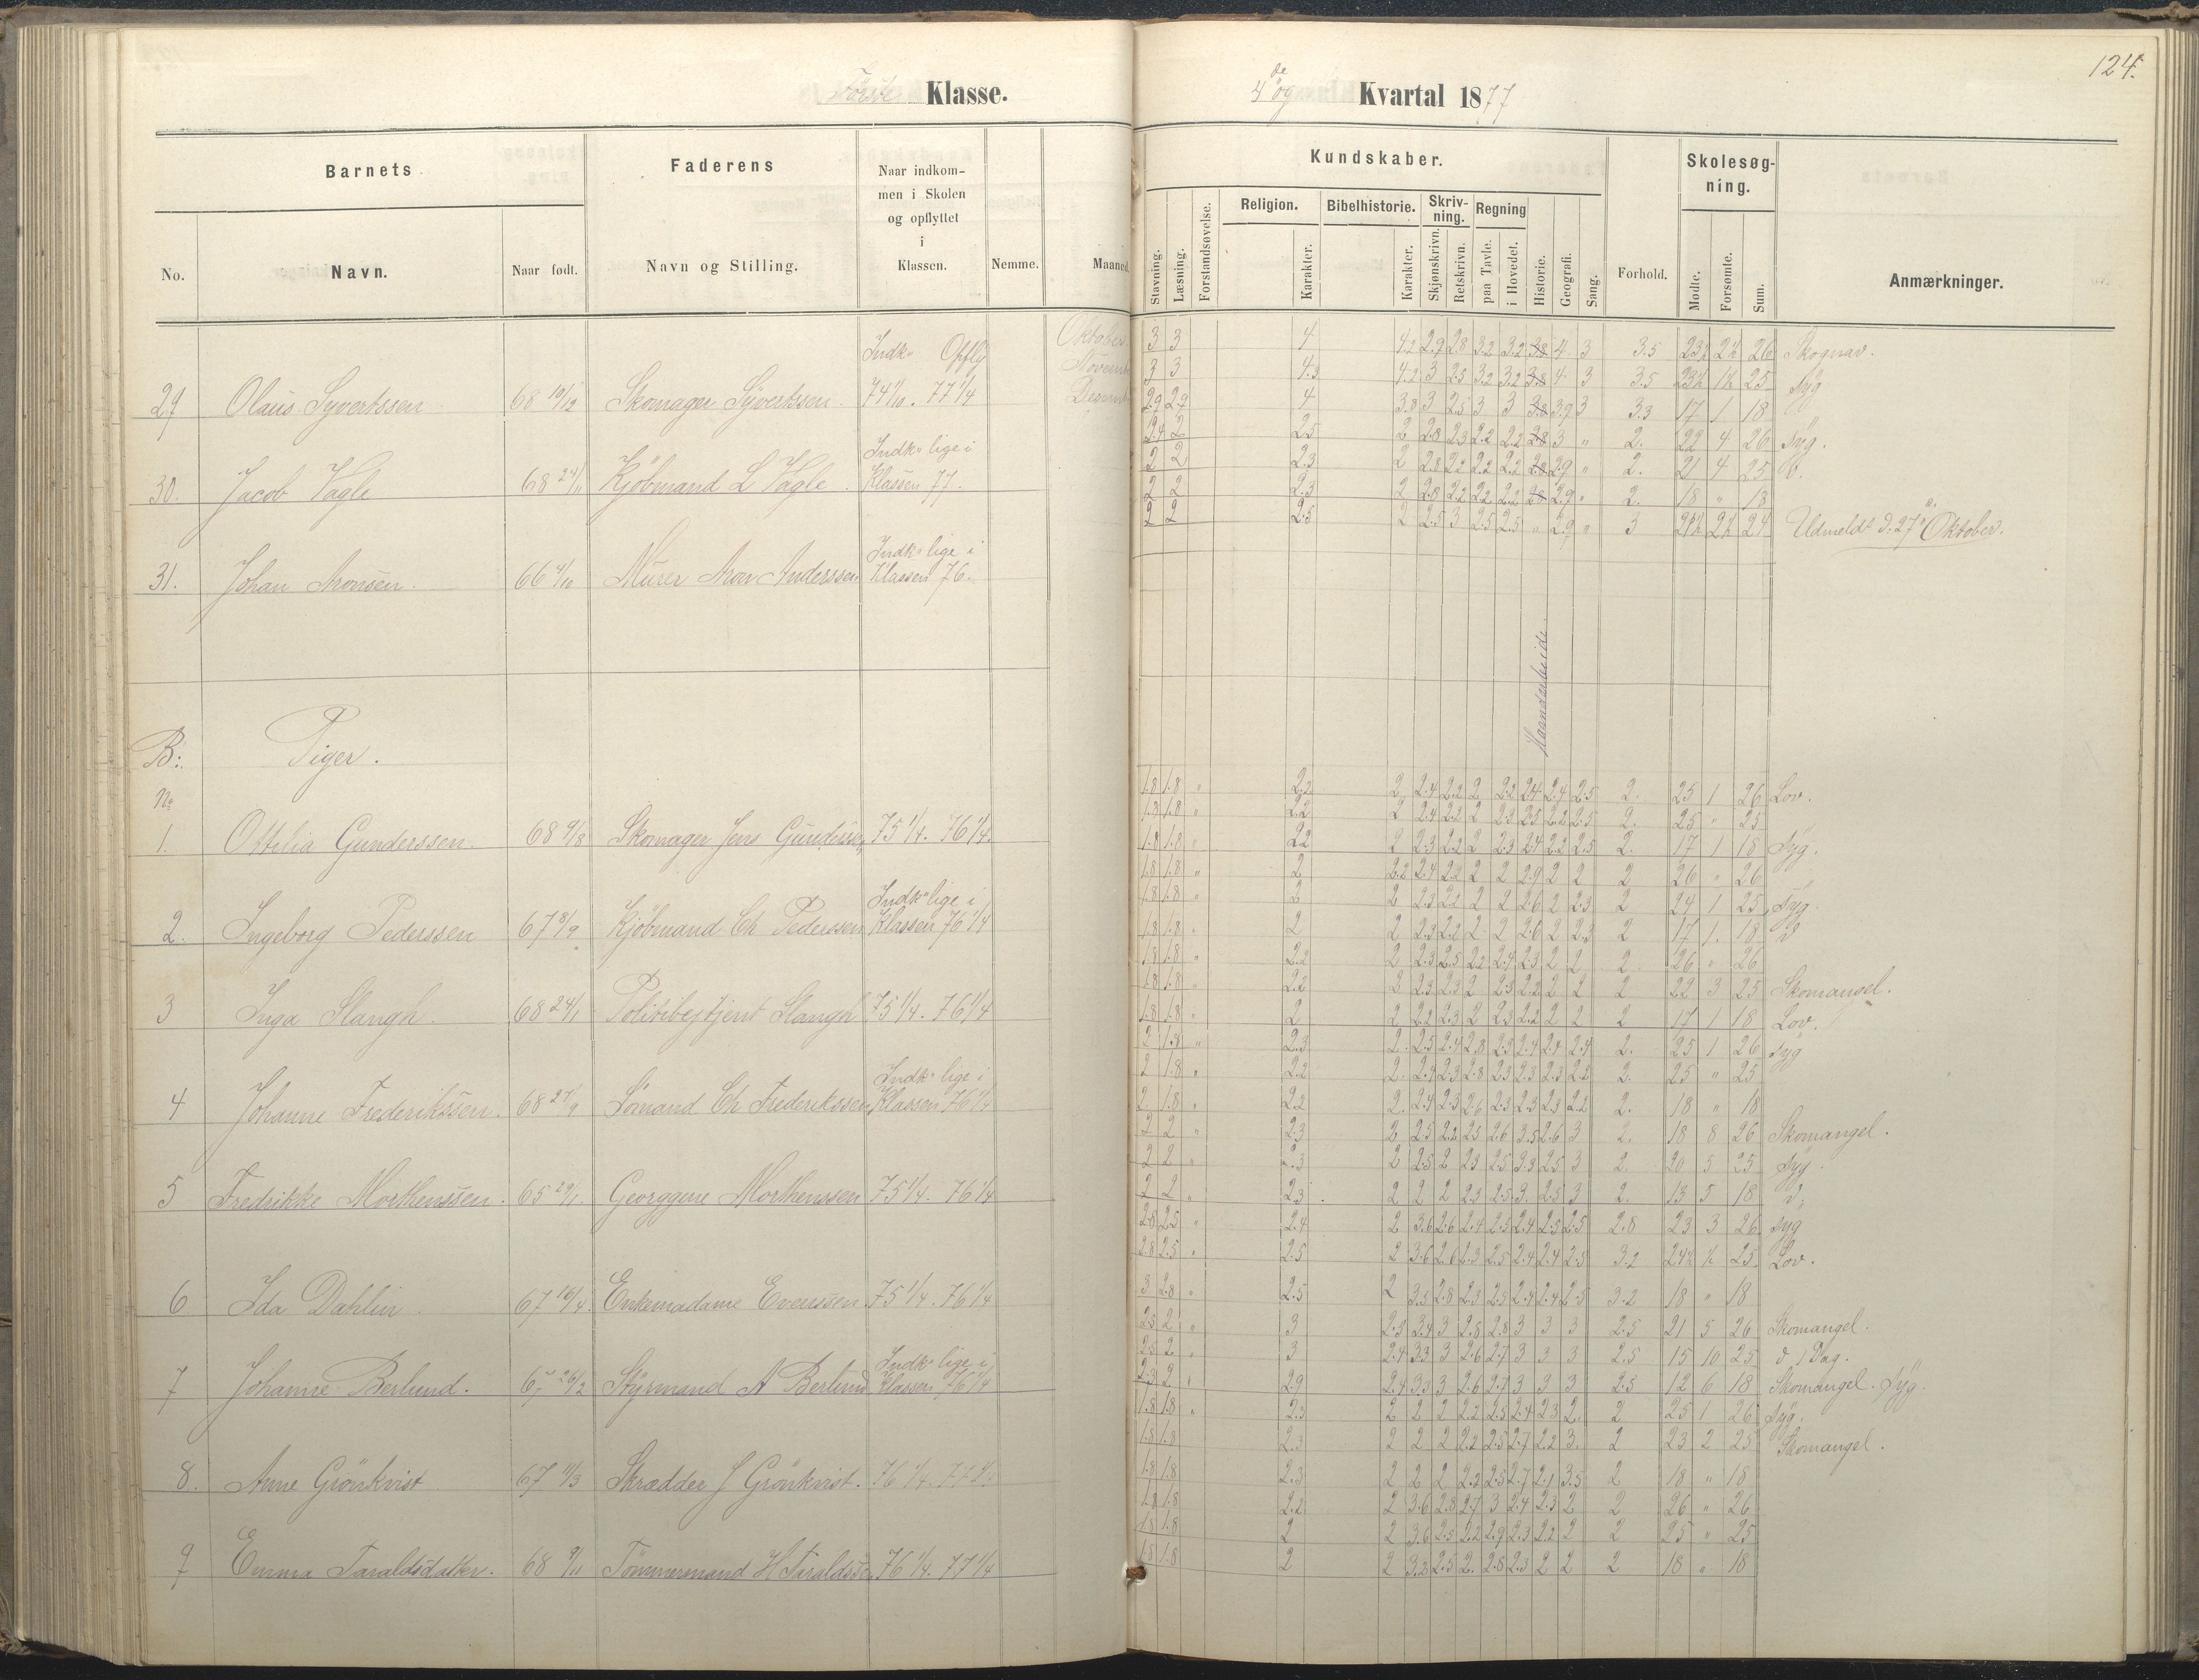 124.
Første Klasse.
4de og Kvartal 1877
Barnets
Faderens
Naar indkom-
men i Skolen
og opflyttet
i
Klassen.
No.
Navn.
Naar født.
Navn og Stilling.
Nemme.
Maaned.
Kundskaber.
Stavning.
Læsning.
Forstandsøvelse.
Religion.
Karakter.
Bibelhistorie.
Karakter.
Skriv-
ning.
Skjønskrivn.
Retskrivn.
Regning
paa Tavle.
i Hovedet.
Historie.
Geografi.
Sang.
Forhold.
Skolesøg-
ning.
Mødte.
Forsømte.
Sum.
Anmærkninger.
Indk. Opfly
29 Olaus Syvertssen 68 10/12 Skomager Syvertssen. 74 1/10. 77 1/4
Oktober 3 3 4 4.2 2.9 2.8 3.2 3.2 3.8 4 3 3.5 23½ 2½ 26 Skognav.
Novemb 3 3 4.3 4.2 3 2.5 3.2 3.2 3.8 4 3 3.5 23½ 1½ 25 Syg
Decemb 2.9 2.9 4 3.8 3 2.5 3 3 3.8 3.9 3 3.3 17 1 18 "
Indk. lige i
30. Jacob Vagle 68 24/11 Kjöbmand L Vagle. Klassen 77.
2.4 2 2.5 2 2.8 2.3 2.2 2.2 2.8 3 " 2. 22 4 26 Syg.
2 2 2.3 2 2.8 2.2 2.2 2.2 2.8 2.9 " 2. 21 4 25
2 2 2.3 2 2.8 2.2 2.2 2.2 2.8 2.9 " 2. 18 " 18
Indk. lige i
31. Johan Aronsen. 66 4/10 Murer Aron Anderssen Klassen 76.
2 2 2.5 2 2.5 3 2.5 2.5 " 2.9 " 3 21½ 2½ 24 Udmeldt d. 27de Oktober.
Haandarbeide.
B: Piger.
No
1. Ottilia Gunderssen. 68 9/8 Skomager Jens Gunderssen 75 1/4. 76 1/4.
1.8 1.8 " 2.2 2 2.4 2.2 2 2.2 2.4 2.4 2.5 2. 25 1 26 Lov.
1.8 1.8 " 2.2 2 2.4 2.2 2 2.3 2.5 2.2 2.5 2. 25 " 25
1.8 1.8 " 2.2 2 2.3 2.2 2 2.3 2.4 2.2 2.5 2. 17 1 18 Syg.
Indk. lige i
2. Ingeborg Pederssen 67 8/9 Kjöbmand Ch Pederssen Klassen 76 1/4
1.8 1.8 " 2 2.2 2.4 2.2 2 2 2.9 2 2 2 26 " 26
1.8 1.8 " 2 2 2.3 2.2 2 2 2.6 2 2.3 2 24 1 25 Syg.
1.8 1.8 " 2 2 2.3 2.2 2 2 2.6 2 2.3 2 17 1. 18
3 Inga Stangh. 68 24/1 Politibetjent Stangh 75 1/4. 76 1/4
1.8 1.8 " 2.2 2 2.3 2.5 2.2 2.4 2.3 2 2 2 26 " 26
1.8 1.8 " 2.2 2 2.3 2.3 2 2.3 2.2 2 2 2 22 3 25 Skomangel.
1.8 1.8 " 2 2 2.2 2.3 2 2.3 2.2 2 2 2 17 1 18 Lov.
Indk. lige i
4 Johanne Frederikssen. 68 27/9 Sömand Ch Frederikssen Klassen 76 1/4
2 1.8 " 2.3 2. 2.5 2.4 2.8 2.3 2.4 2.4 2.4 2. 25 1 26 Syg
2 1.8 " 2.2 2. 2.4 2.3 2.8 2.3 2.3 2.3 2.2 2. 25 " 25
2 1.8 " 2.2 2. 2.4 2.3 2.6 2.3 2.3 2.3 2.2 2. 18 " 18
5 Fredrikke Morthenssen. 65 29/1. Georggine Morthenssen 75 1/4. 76 1/4
2 2 " 2.3 2 2.5 2.2 2.5 2.6 3.5 2.6 3 2. 18 8 26 Skomangel.
2 2 " 2.3 2 2.5 2 2.3 2.5 3.3 2.5 3 2. 20 5 25 Syg.
2 2 " 2.3 2 2 2 2.3 2.5 3. 2.5 3 2. 13 5 18
6 Ida Dahlin. 67 16/4. Enkemadame Evenssen. 75 1/4. 76 1/4
2.8 2.5 " 2.4 2 3.6 2.6 2.4 2.5 2.4 2.5 2.5 2.8 23 3 26 Syg
2.8 2.5 " 2.5 2 3.6 2.6 2.3 2.5 2.4 2.4 2.5 3.2 24½ ½ 25 Lov.
3 2.8 " 2.5 2 3.5 2.8 2.3 2.5 2.4 2.4 2.5 3.2 18 " 18
Indk. lige i
7 Johanne Berlund. 67 26/2 Styrmand A Berlund Klassen 76 1/4
2.5 2 " 3 2.3 3.4 3 2.8 2.8 3 3 3 2.5 21 5 26 Skomangel.
2.5 2 " 3 2.4 3.3 3 2.6 2.7 3 3 3 2.5 15 10 25 d 1 Dag.
2.3 2 " 2.9 2.4 3.3 3 2.6 2.7 3 3 3 2.5 12 6 18 Skomangel. Syg.
8. Anne Grönkvist 67 11/3 Skrædder J Grönkvist. 76 1/4. 77 1/4.
1.8 1.8 " 2.3 2 2 2 2.2 2.5 2.4 2.3 2. 2 25 1 26 Syg.
1.8 1.8 2.3 2 2 2 2.2 2.5 2.7 2.2 3. 2 23 2 25 Skomangel.
1.8 1.8 2.3 2 2 2 2.2 2.5 2.7 2.1 3.5 2 18 " 18
9 Emma Taraldsdatter. 68 9/11 Tömmermand H Taraldss. 76 1/4. 77 1/4
1.8 1.8 2.2 2 3.6 2.8 2.7 3 2.4 2.3 2 2 26 " 26
1.8 1.8 2 2 3.6 2.5 2.2 2.9 2.3 2.2 2 2 25 " 25
1.8 1.8 2 2 3.2 2.5 2. 2.8 2.3 2 2 2 18 " 18